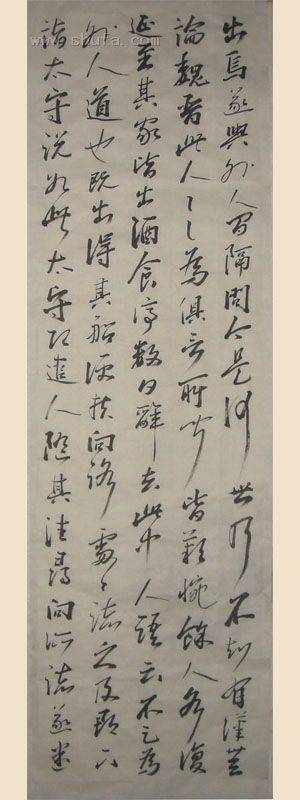 出焉遂與外人間隔問今是何世乃不知有漢無
論魏晉此人一一為俱言所聞皆歎惋餘人各復
延至其家皆出酒食停數日辭去此中人語云不足為
外人道也既出得其船便扶向路處〻誌之及郡下
詣太守說如此太守即遣人隨其往尋向所誌遂迷